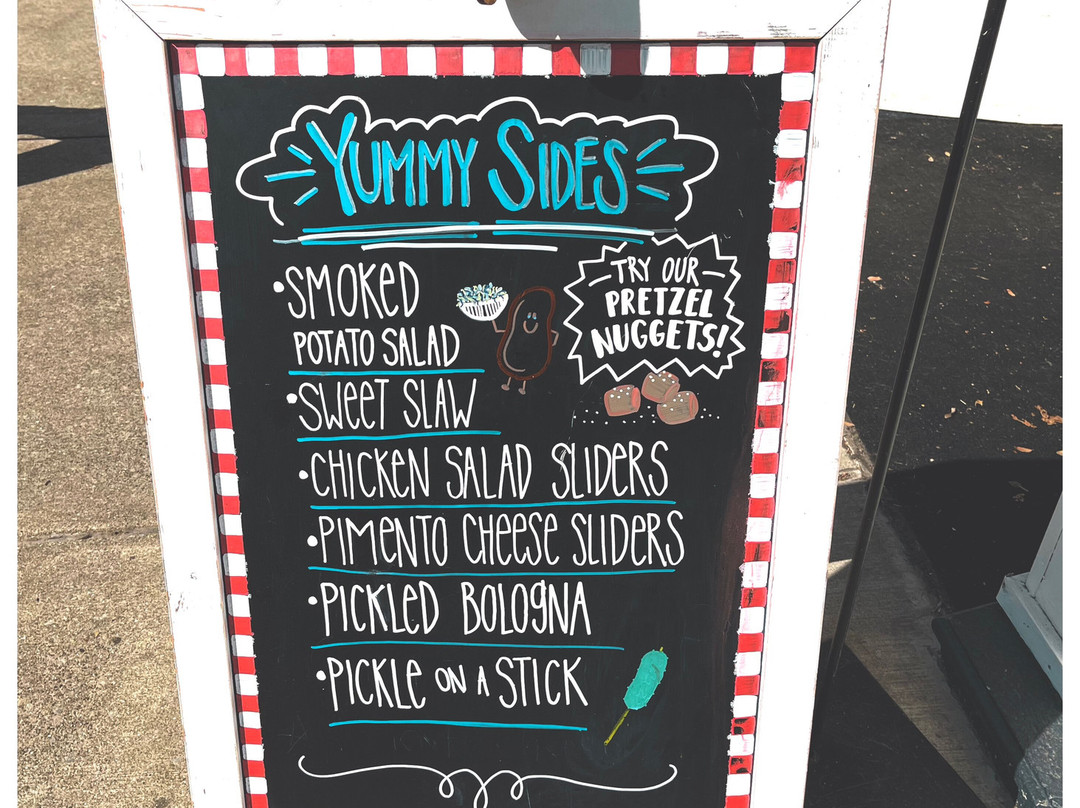 YUMMY SIDES
•SMOKED
POTATO SALAD
TRY OUR
PRETZEL
NUGGETS!
•SWEET SLAW
•CHICKEN SALAD SLIDERS
•PIMENTO CHEESE SLIDERS
•PICKLED BOLOGNA
•PICKLE ON A STICK